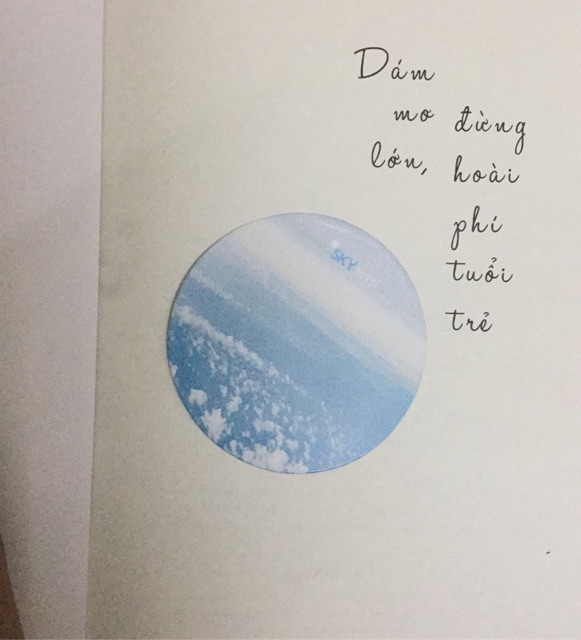 Dám
mơ
lớn,
đừng
hoài
phí
tuổi
trẻ
SKY